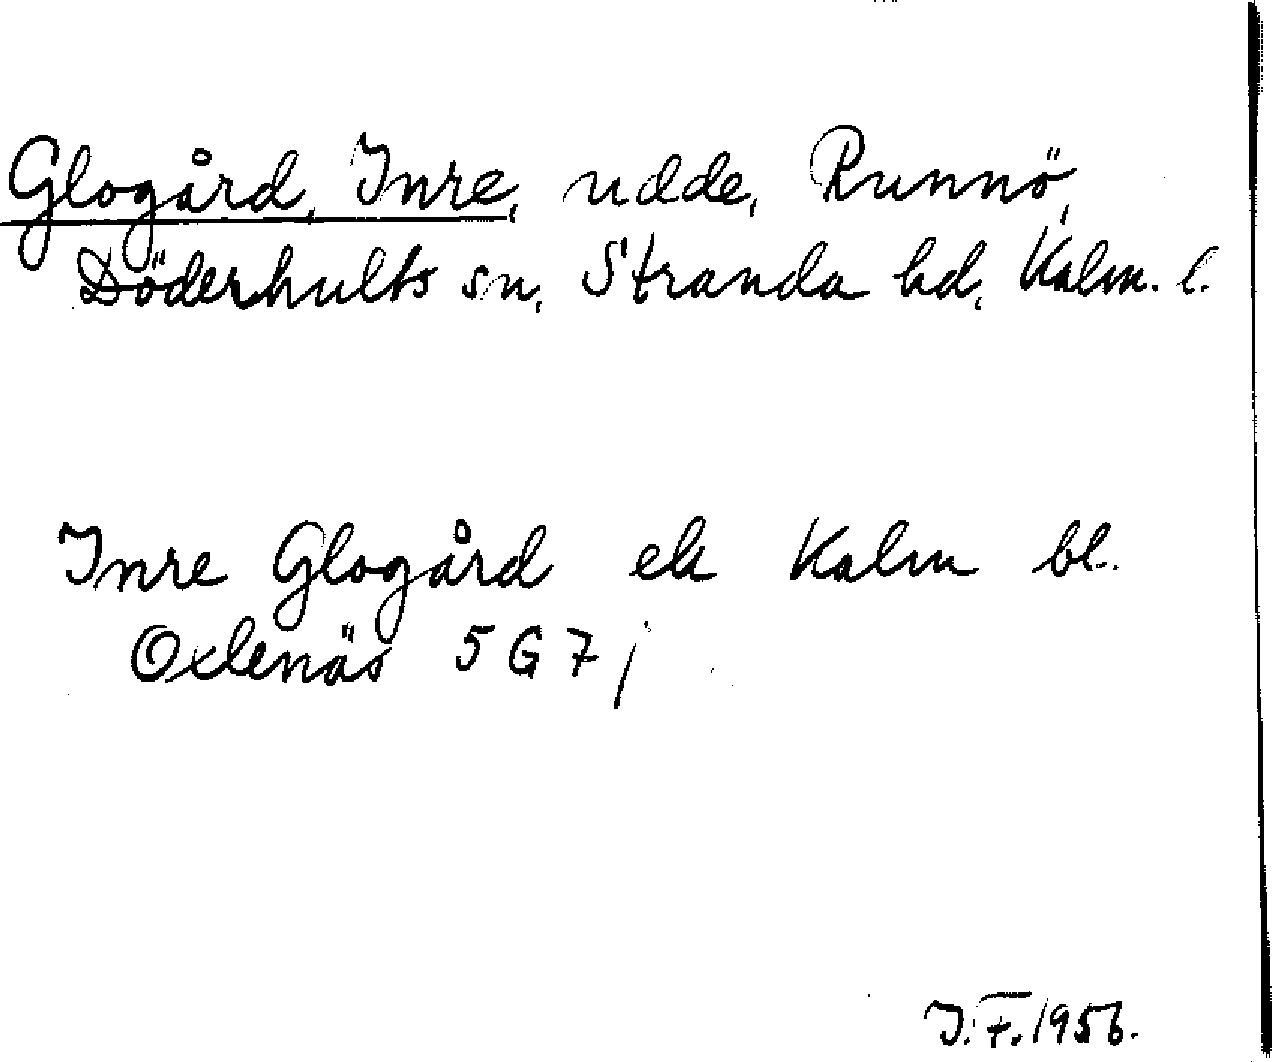 Glogård, Inre, udde, Runnö,
Döderhults sn, Stranda hd, Kalm. l.
Inre Glogård ek Kalm bl.
Oxlenäs 5 G 7 j
J.F. 1956.